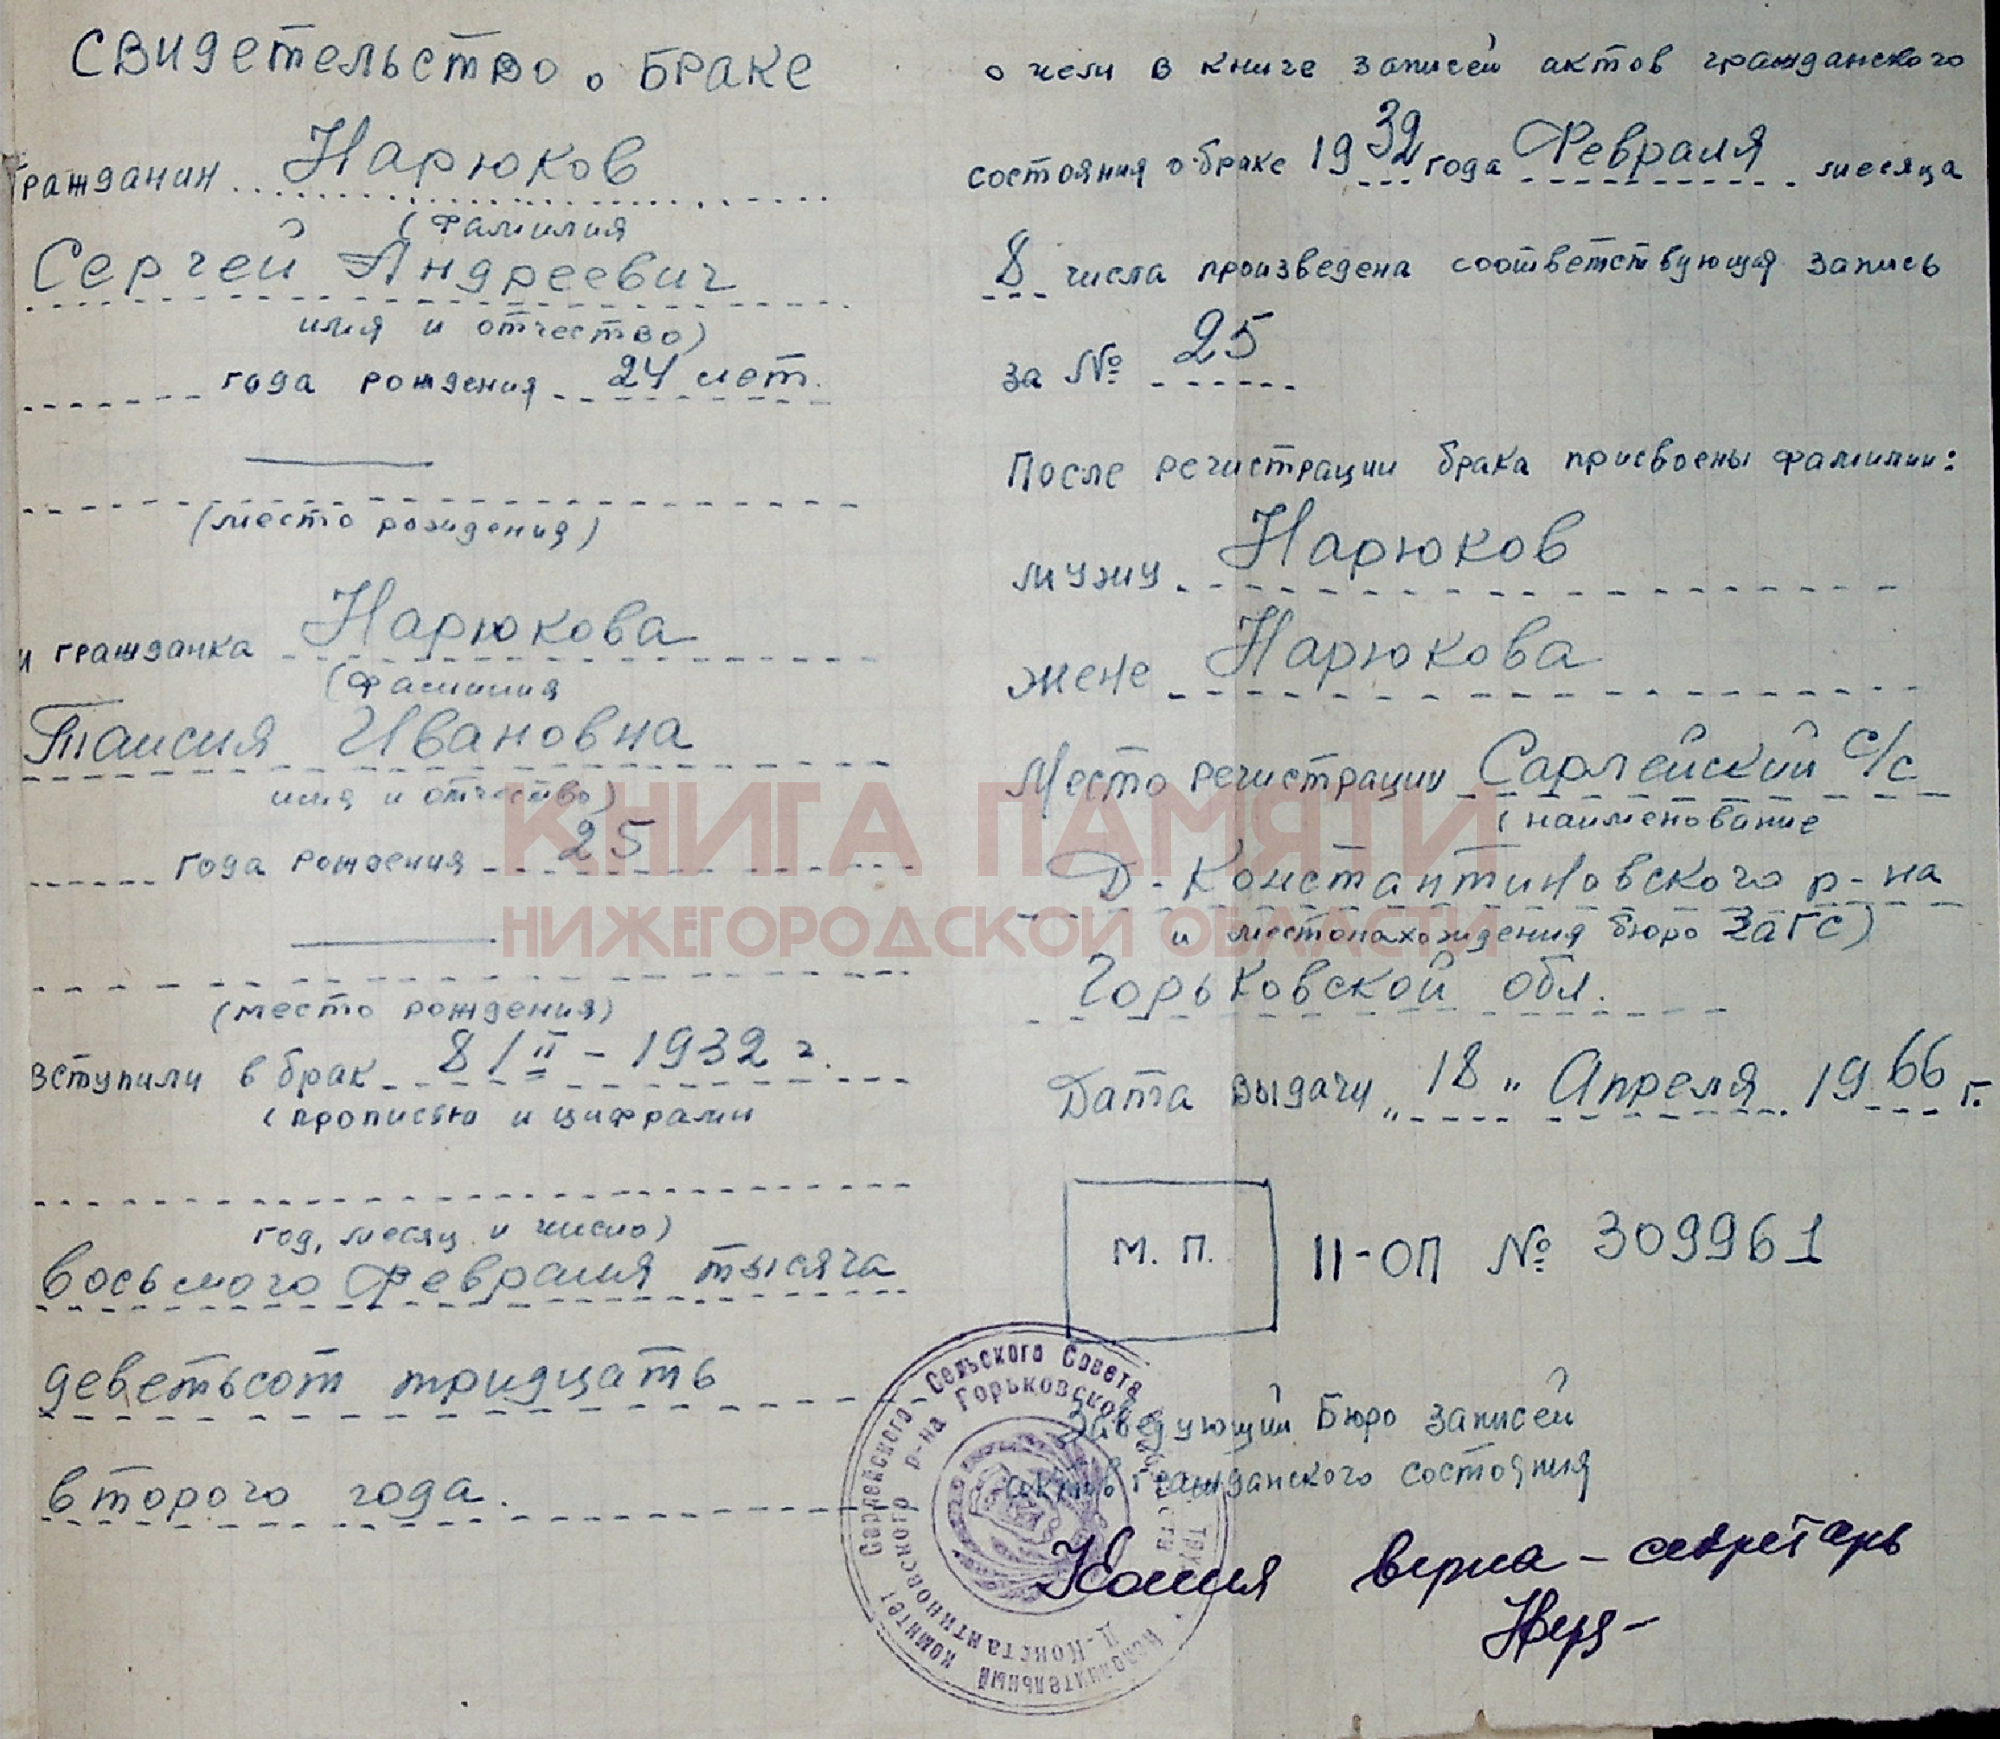 Свидетельство о браке
Гражданин Нарюков
(фамилия
Сергей Андреевич
имя и отчество)
года рождения 24 лет.
(место рождения)
и гражданка Нарюкова
(фамилия
Таисия Ивановна
имя и отчество)
года рождения 25
(место рождения)
вступили в брак 8/II – 1932 г.
(прописью и цифрами
год, месяц и число)
восьмого февраля тысяча
деветьсот тридцать
второго года.
о чем в книге записей актов гражданского
состояния о браке 1932 года Февраля месяца
8 числа произведена соответствующая запись
за № 25
После регистрации брака присвоены фамилии:
мужу Нарюков
жене Нарюкова
Место регистрации Сарлейский с/с
(наименование
Д-Константиновского р-на
и местонахождения бюро ЗАГС)
Горьковской обл.
Дата выдачи „18" Апреля 1966 г.
М. П. II-ОП № 309961
Заведующий Бюро записей
актов гражданского состояния
Копия верна – секретарь
КНИГА ПАМЯТИ
НИЖЕГОРОДСКОЙ ОБЛАСТИ
Исполнительный комитет Сарлейского Сельского Совета
Д-Константиновского р-на Горьковской области